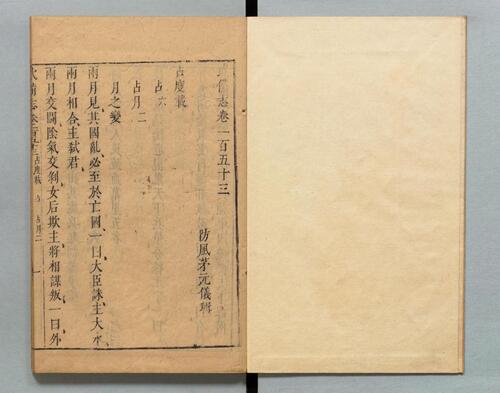 備志卷一百五十三
防風茅元儀輯
占度載
占六
占月二
月之變
兩月見其國亂必至於亡國一曰大臣誅主大水
兩月相合主弒君
兩月交鬬陰氣交剝女后欺主將相謀叛一曰外
武備志卷 占度載 占月二 一